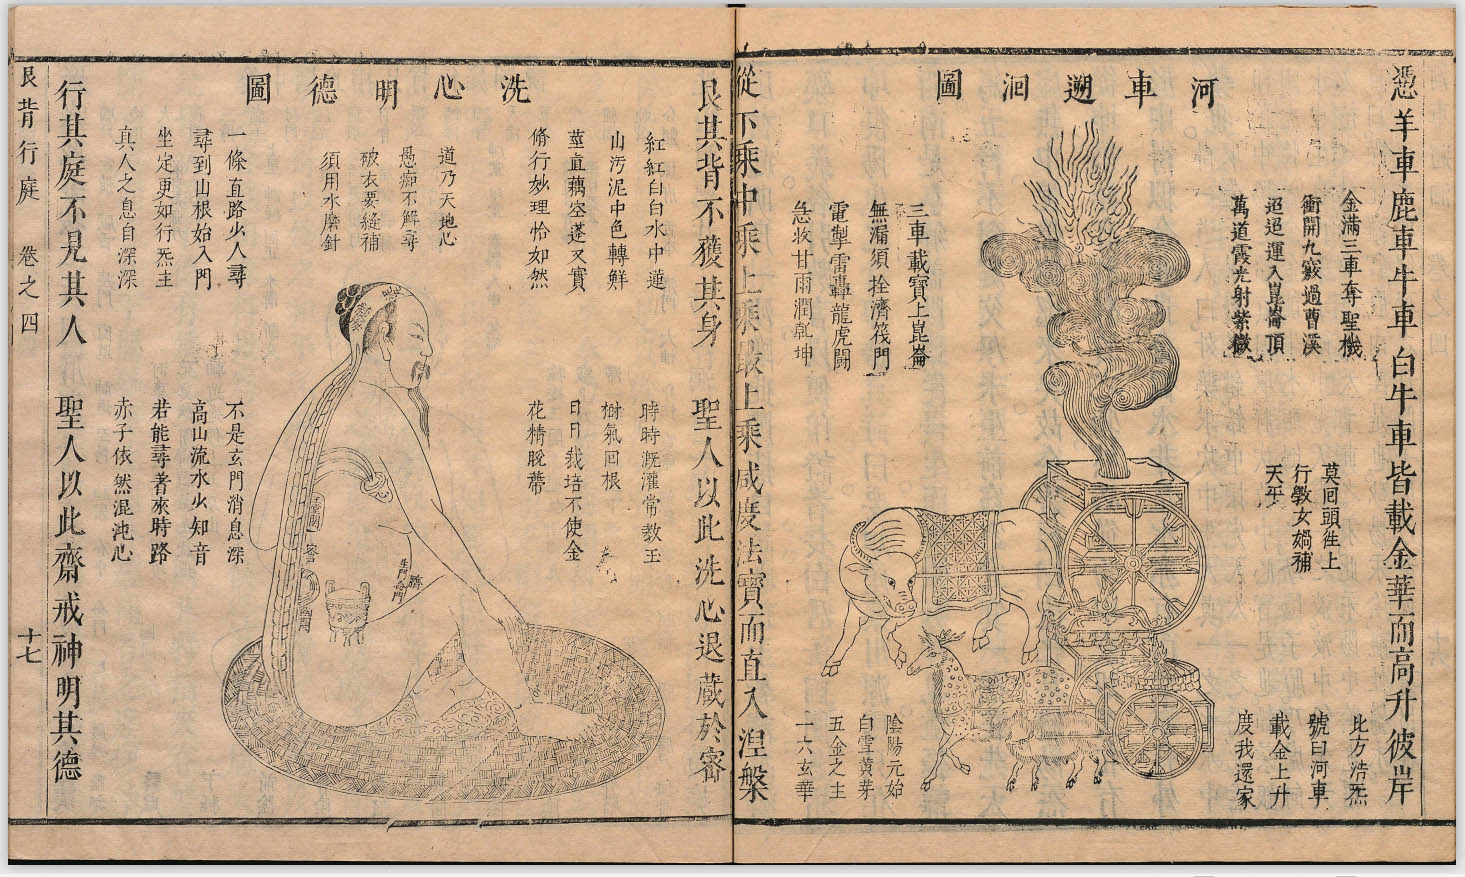 憑羊車鹿車牛車白牛車皆載金華而高升彼岸
河車遡洄圖
金滿三車奪聖機
衝開九竅過曹溪
迢迢運入崑崙頂
萬道霞光射紫微
三車載寶上崑崙
無漏須拴濟筏門
電掣雷轟龍虎鬭
急收甘雨潤乾坤
莫囘頭徃上
行敎女媧補
天乎
比方浩炁
號曰河車
載金上升
度我還家
陰陽元始
白雪黃芽
五金之主
一六玄華
從下乘中乘上乘最上乘咸度法寶而直入涅槃
艮其背不獲其身 聖人以此洗心退藏於密
洗心明德圖
紅紅白白水中蓮
出汚泥中色轉鮮
莖直藕空蓬又實
脩行妙理恰如然
道乃天地心
愚痴不解尋
破衣要縫補
須用水磨針
一條直路少人尋
尋到山根始入門
坐定更如行炁主
真人之息自深深
時時溉灌常教玉
樹氣囘根
日日栽培不使金
花精脫蔕
不是玄門消息深
高山流水少知音
若能尋著來時路
赤子依然混沌心
行其庭不見其人 聖人以此齋戒神明其德
艮背行庭 卷之四 十七